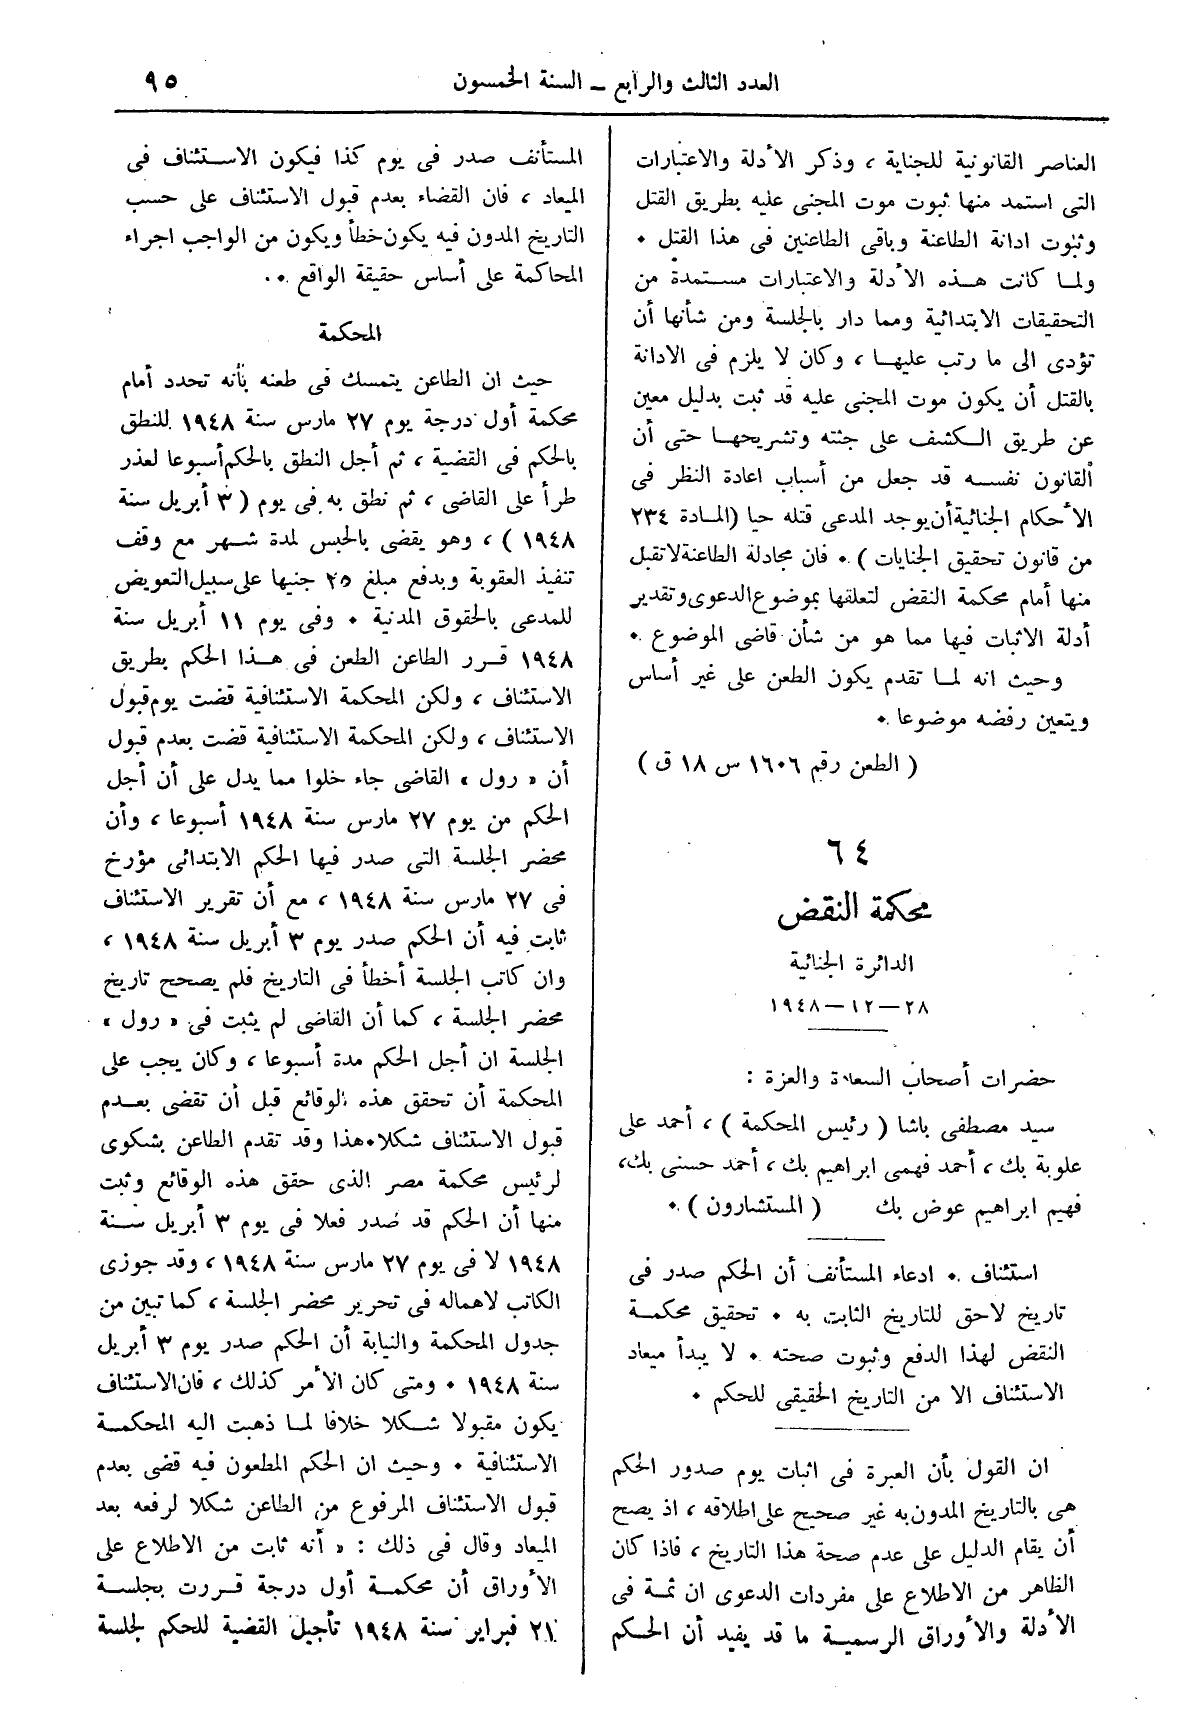 العدد الثالث والرابع ــ السنة الخمسون
٩٥
العناصر القانونية للجناية ، وذكر الأدلة والاعتبارات
التى استمد منها ثبوت موت المجنى عليه بطريق القتل
وثبوت ادانة الطاعنة وباقى الطاعنين فى هذا القتل .
ولما كانت هذه الأدلة والاعتبارات مستمدة من
التحقيقات الابتدائية ومما دار بالجلسة ومن شأنها أن
تؤدى الى ما رتب عليها ، وكان لا يلزم فى الادانة
بالقتل أن يكون موت المجنى عليه قد ثبت بدليل معين
عن طريق الكشف على جثته وتشريحها حتى أن
القانون نفسه قد جعل من أسباب اعادة النظر فى
الأحكام الجنائية أن يوجد المدعى قتله حيا (المادة ٢٣٤
من قانون تحقيق الجنايات ) . فان مجادلة الطاعنة لا تقبل
منها أمام محكمة النقض لتعلقها بموضوع الدعوى وتقدير
أدلة الاثبات فيها مما هو من شأن قاضى الموضوع .
وحيث انه لما تقدم يكون الطعن على غير أساس
ويتعين رفضه موضوعا .
( الطعن رقم ١٦٠٦ س ١٨ ق )
٦٤
محكمة النقض
الدائرة الجنائية
٢٨ــ١٢ــ١٩٤٨
حضرات أصحاب السعادة والعزة :
سيد مصطفى باشا ( رئيس المحكمة ) ، أحمد على
علوبة بك ، أحمد فهمى ابراهيم بك ، أحمد حسنى بك،
فهيم ابراهيم عوض بك ( المستشارون ) .
استئناف . ادعاء المستأنف أن الحكم صدر فى
تاريخ لاحق للتاريخ الثابت به . تحقيق محكمة
النقض لهذا الدفع وثبوت صحته . لا يبدأ ميعاد
الاستئناف الا من التاريخ الحقيقى للحكم .
ان القول بأن العبرة فى اثبات يوم صدور الحكم
هى بالتاريخ المدون به غير صحيح على اطلاقه ، اذ يصح
أن يقام الدليل على عدم صحة هذا التاريخ ، فاذا كان
الظاهر من الاطلاع على مفردات الدعوى ان ثمة فى
الأدلة والأوراق الرسمية ما قد يفيد أن الحكم
المستأنف صدر فى يوم كذا فيكون الاستئناف فى
الميعاد ، فان القضاء بعدم قبول الاستئناف على حسب
التاريخ المدون فيه يكون خطأ ويكون من الواجب اجراء
المحاكمة على أساس حقيقة الواقع .
المحكمة
حيث ان الطاعن يتمسك فى طعنه بأنه تحدد أمام
محكمة أول درجة يوم ٢٧ مارس سنة ١٩٤٨ للنطق
بالحكم فى القضية ، ثم أجل النطق بالحكم أسبوعا لعذر
طرأ على القاضى ، ثم نطق به فى يوم ( ٣ أبريل سنة
١٩٤٨ ) ، وهو يقضى بالحبس لمدة شهر مع وقف
تنفيذ العقوبة وبدفع مبلغ ٢٥ جنيها على سبيل التعويض
للمدعى بالحقوق المدنية . وفى يوم ١١ أبريل سنة
١٩٤٨ قرر الطاعن الطعن فى هذا الحكم بطريق
الاستئناف ، ولكن المحكمة الاستئنافية قضت يوم قبول
الاستئناف ، ولكن المحكمة الاستئنافية قضت بعدم قبول
أن « رول » القاضى جاء خلوا مما يدل على أن أجل
الحكم من يوم ٢٧ مارس سنة ١٩٤٨ أسبوعا ، وأن
محضر الجلسة التى صدر فيها الحكم الابتدائى مؤرخ
فى ٢٧ مارس سنة ١٩٤٨ ، مع أن تقرير الاستئناف
ثابت فيه أن الحكم صدر يوم ٣ أبريل سنة ١٩٤٨ ،
وان كاتب الجلسة أخطأ فى التاريخ فلم يصحح تاريخ
محضر الجلسة ، كما أن القاضى لم يثبت فى « رول »
الجلسة ان أجل الحكم مدة أسبوعا ، وكان يجب على
المحكمة أن تحقق هذه الوقائع قبل أن تقضى بعدم
قبول الاستئناف شكلا . هذا وقد تقدم الطاعن بشكوى
لرئيس محكمة مصر الذى حقق هذه الوقائع وثبت
منها أن الحكم قد صدر فعلا فى يوم ٣ أبريل سنة
١٩٤٨ لا فى يوم ٢٧ مارس سنة ١٩٤٨ ، وقد جوزى
الكاتب لاهماله فى تحرير محضر الجلسة ، كما تبين من
جدول المحكمة والنيابة أن الحكم صدر يوم ٣ أبريل
سنة ١٩٤٨ . ومتى كان الأمر كذلك ، فان الاستئناف
يكون مقبولا شكلا خلافا لما ذهبت اليه المحكمة
الاستئنافية . وحيث ان الحكم المطعون فيه قضى بعدم
قبول الاستئناف المرفوع من الطاعن شكلا لرفعه بعد
الميعاد وقال فى ذلك : « أنه ثابت من الاطلاع على
الأوراق أن محكمة أول درجة قررت بجلسة
٢١ فبراير سنة ١٩٤٨ تأجيل القضية للحكم لجلسة